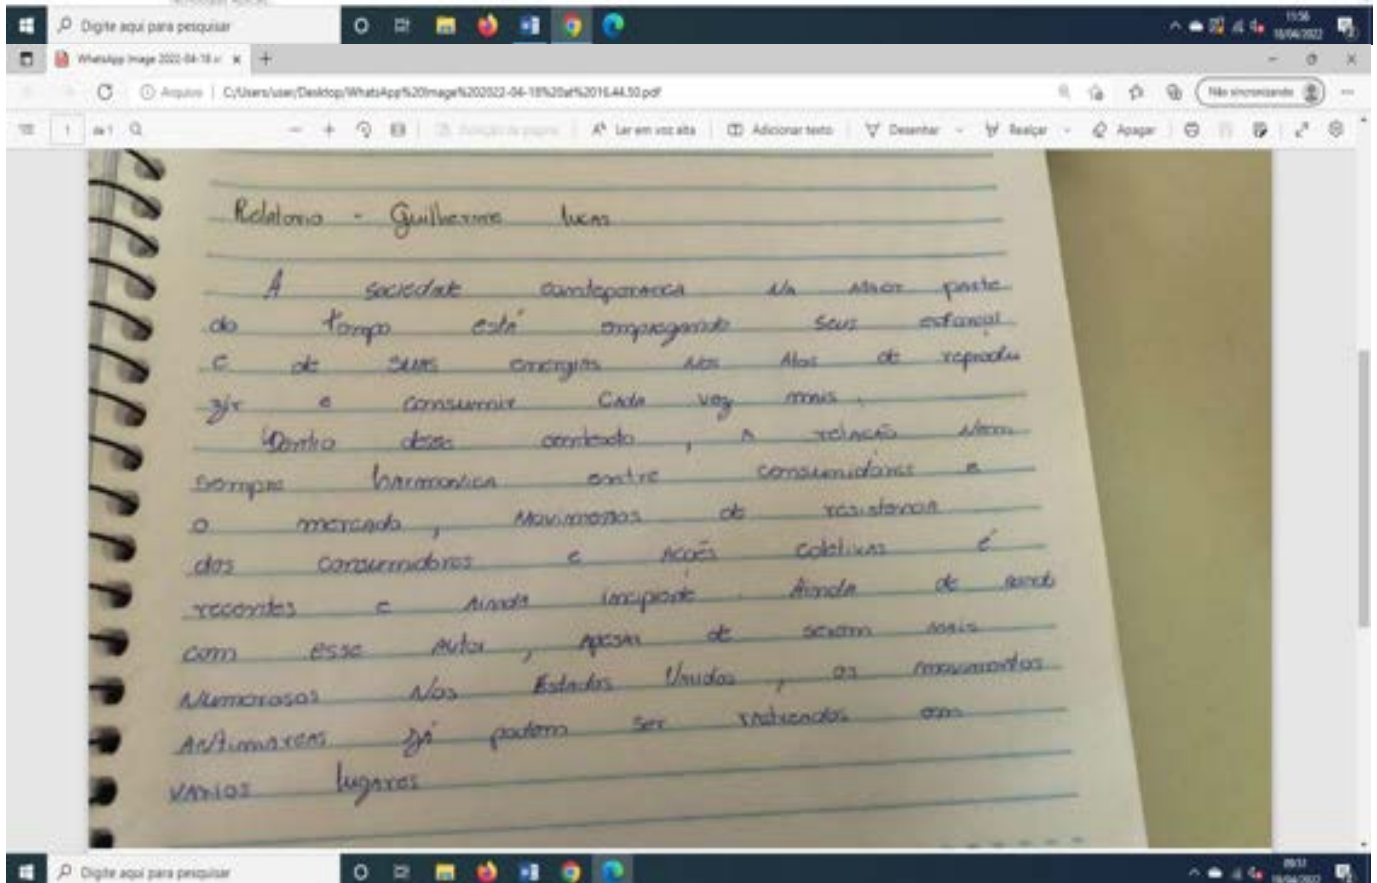 Digite aqui para pesquisar
11:56
18/04/2022
WhatsApp Image 2022-04-18 at
Arquivo | C:/Users/user/Desktop/WhatsApp%20Image%202022-04-18%20at%2016.44.50.pdf
Não sincronizando
1 de 1
Ler em voz alta
Adicionar texto
Desenhar
Realçar
Apagar
Relatorio - Guilherme lucas
A sociedade NA MAior parte
do tempo está empregando seus
E de suas energias Nos Atos de reprodu
zir e consumir CAdA vez mais.
Dentro desse contexto, A relação Nem
sempre harmonica entre consumidores e
o mercado, de resistencia
dos consumidores e Acoēs coletivas é
recentes e AindA incipiente. AindA de
com esse Autor, Apesar de serem mais
Numerosos Nos Estados Unidos, os movimentos
Antimarcas já podem ser em
vários lugares
Digite aqui para pesquisar